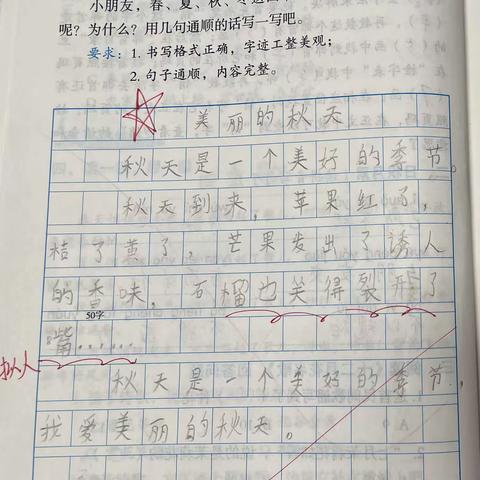 小朋友，春、夏、秋、冬这四
呢？为什么？用几句通顺的话写一写吧。
要求：1. 书写格式正确，字迹工整美观；
2. 句子通顺，内容完整。
美丽的秋天
秋天是一个美好的季节。
秋天到来，苹果红了，
桔了黄了，芒果发出了诱人
的香味，石榴也笑得裂开了
50字
嘴……
拟人
秋天是一个美好的季节，
我爱美丽的秋天。